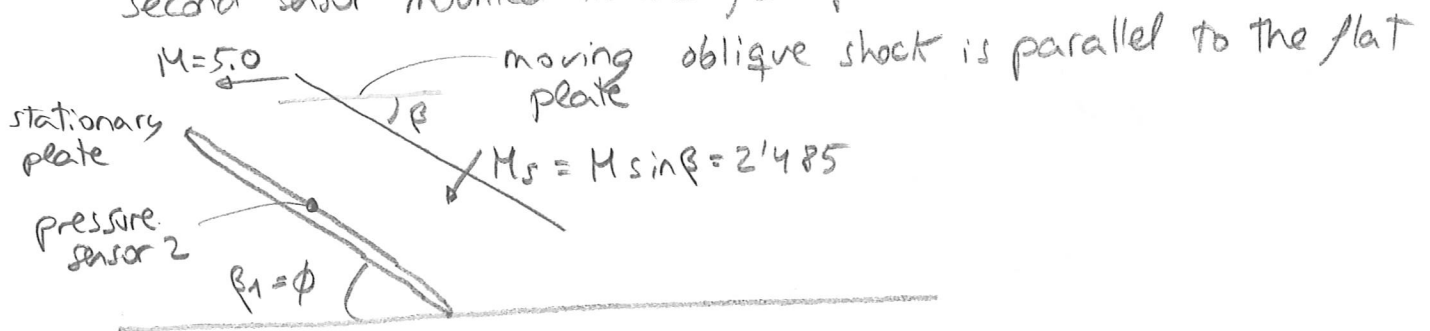 second sensor
M=5.0
moving oblique shock is parallel to the flat
plate
β
stationary
plate
Ms = M sinβ = 2'485
pressure
sensor 2
β1=ϕ